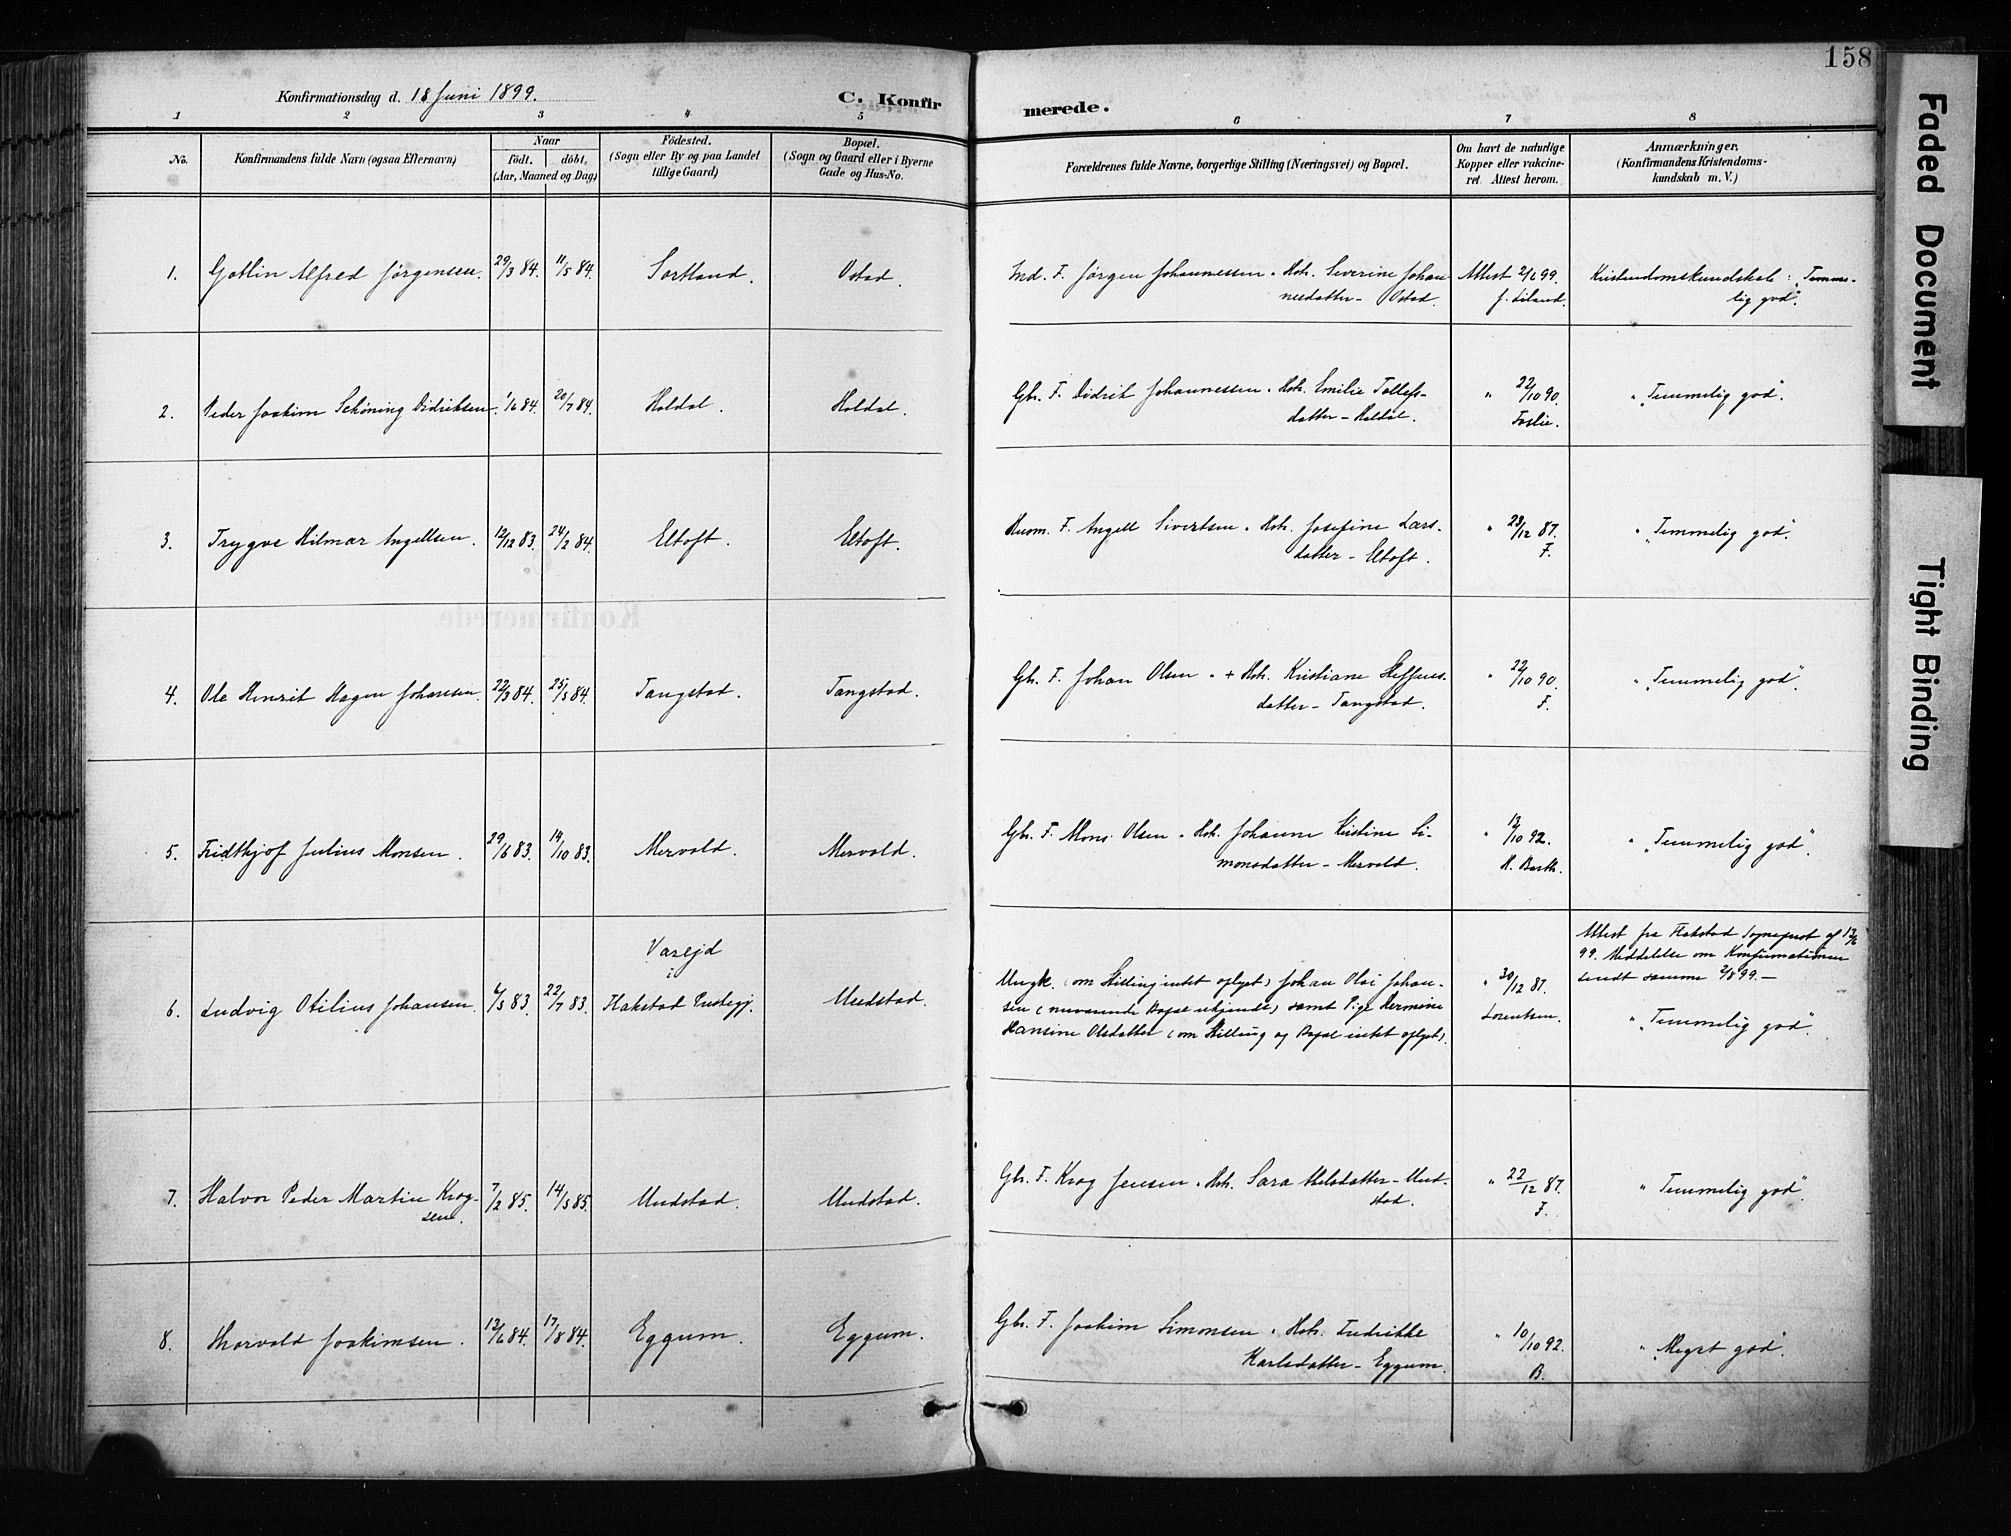 158
Konfirmationsdag d. 18 Juni 1899.
C. Konfirmerede.
1 2 3 4 5 6 7 8
No.
Konfirmandens fulde Navn (ogsaa Efternavn)
Naar
födt, döbt,
(Aar, Maaned og Dag)
Födested.
(Sogn eller By og paa Landet
tillige Gaard)
Bopæl.
(Sogn og Gaard eller i Byerne
Gade og Hus-No.
Forældrenes fulde Navne, borgerlige Stilling (Næringsvei) og Bopæl.
Om havt de naturlige
Kopper eller vakcine-
ret. Attest herom.
Anmærkninger.
(Konfirmandens Kristendoms-
kundskab m. V.)
1. Alfred Jørgensen. 29/3 84. 11/5 84. Sortland. Ostad.
Ind. F. Jørgen Johannessen. Hst. Severine Johan
nesdatter - Ostad.
Attest 2/6 99.
Kristendomskundskab: "Temme-
lig god".
2. Peder Joakim Schøning Didriksen. 1/6 84. 20/7 84. Holdal. Holdal.
Gbr. F. Didrik Johannessen. Hst. Emilie Tollefs-
datter - Holdal.
" 22/10 90.
Foslie.
" "Temmelig god".
3. Trygve Hilmar Angellsen. 12/12 83. 24/2 84. Eltoft. Eltoft.
Husm. F. Angell Sivertsen. Hst. Josefine Lars-
datter - Eltoft.
" 23/12 87.
F.
" "Temmelig god".
4. Ole Henrik Hagen Johansen. 22/3 84. 25/5 84. Tangstad. Tangstad.
Gbr. F. Johan Olsen " + Hst. Kristiane Steffens-
datter - Tangstad.
" 22/10 90.
F.
" "Temmelig god".
5. Fridthjof Julius Monsen. 29/6 83. 14/10 83. Mervold. Mervold.
Gbr. F. Mons Olsen. Hst. Johanne Kristine Si-
monsdatter - Mervold.
" 13/10 92.
H. Barth.
" "Temmelig god".
Attest fra Hakstad Sogneprest af 13/6
99. Meddelelse om Konfirmationen
sendt samme 2/8 99. -
6. Ludvig Otilius Johansen. 22/7 83.
i
Hakstad Prestegj.
Mudstad.
Ungk. (om Stilling intet oplyst) Johan Johan-
sen (nuværende Bopæl ukjendt) samt Pige Hermine
Hansine Olsdatter (om Stilling og Bopæl intet oplyst).
" 30/12 87.
Lorentsen.
" "Temmelig god".
7. Halvor Peder Martin Krog-
sen. 7/2 85. 14/5 85. Mudstad. Mudstad.
Gbr. F. Krog Jensen. Hst. Sara Nilsdatter - Mud-
stad.
" 22/12 87.
F.
" "Temmelig god".
8. Thorvald Joakimsen. 13/6 84. 17/8 84. Eggum. Eggum.
Gbr. F. Joakim Simonsen. Hst. Fredrikke
Karlsdatter - Eggum.
" 10/10 92.
B.
" "Meget god".
Faded Document
Tight Binding